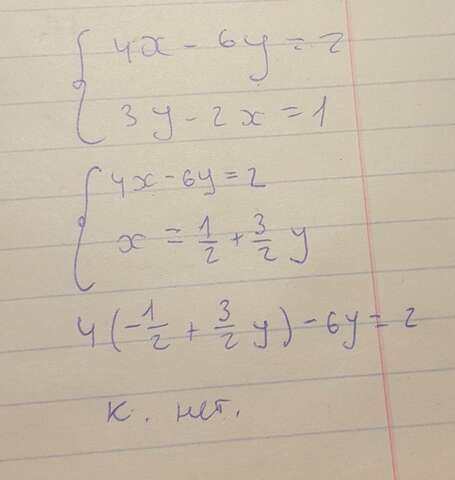 4x - 6y = 2
3y - 2x = 1
4x - 6y = 2
x = 1/2 + 3/2 y
4(-1/2 + 3/2 y) - 6y = 2
к. нет.